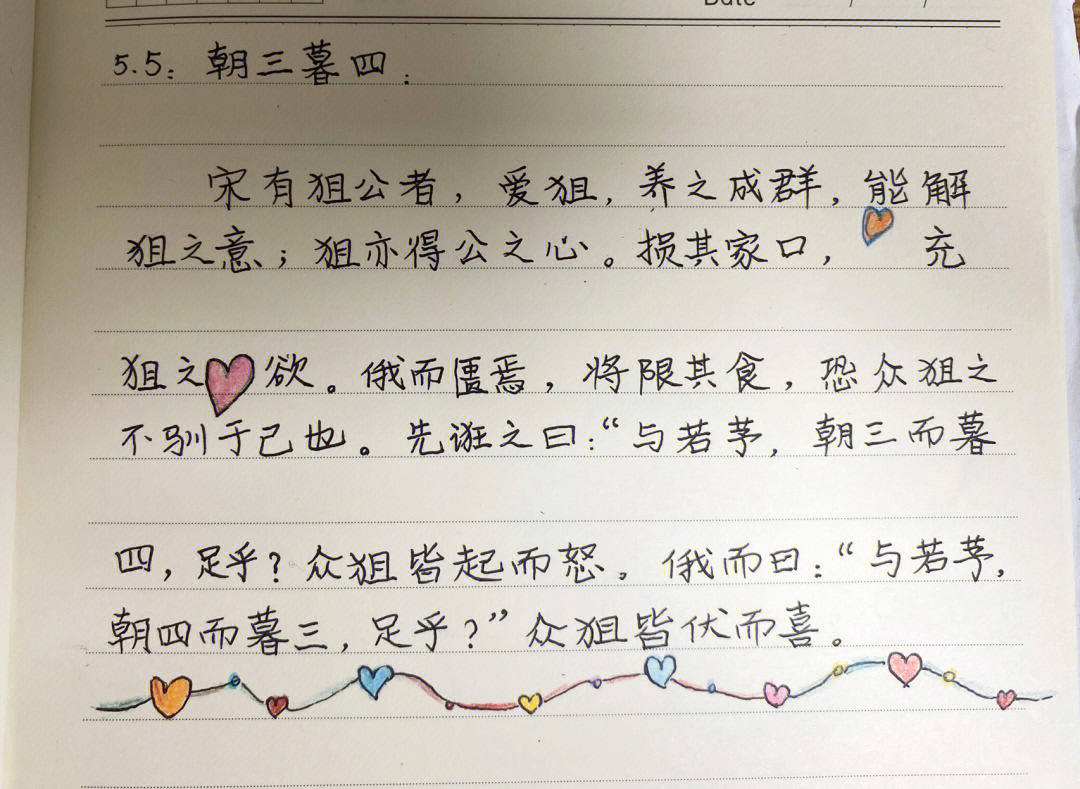 Date
5.5：朝三暮四：
宋有狙公者，爱狙，养之成群，能解
狙之意；狙亦得公之心。损其家口，充
狙之欲。俄而匮焉，将限其食，恐众狙之
不驯于己也。先诳之曰：“与若芧，朝三而暮
四，足乎？众狙皆起而怒。俄而曰：“与若芧，
朝四而暮三，足乎？”众狙皆伏而喜。